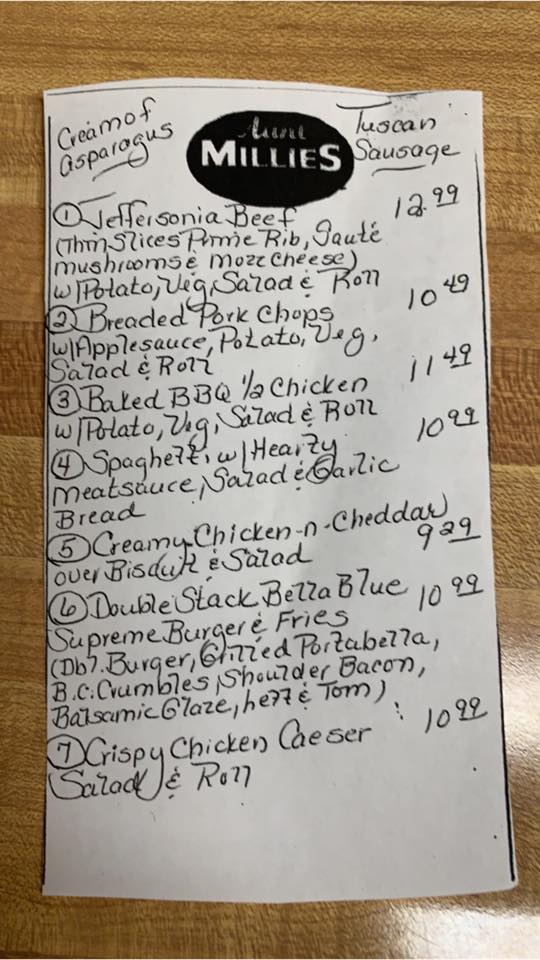 Cream of
asparagus
Aunt
MILLIES
Tuscan
Sausage
① Jeffersonia Beef 12.99
(Thin Slices Prime Rib, Sauté
mushrooms & mozz cheese)
w/Potato, Veg, Salad & Roll
② Breaded Pork Chops 10 49
w/Applesauce, Potato, Veg,
Salad & Roll
③ Baked BBQ 1/2 Chicken 11 49
w/Potato, Veg, Salad & Roll
④ Spaghetti w/Hearty 10 99
meatsauce, Salad & Garlic
Bread
⑤ Creamy Chicken-n-Cheddar
over Biscuit & Salad 9 29
⑥ Double Stack Bella Blue 10 99
Supreme Burger & Fries
(Dbl. Burger, Grilled Portabella,
B.C. Crumbles, Shoulder Bacon,
Balsamic Glaze, lett & Tom)
⑦ Crispy Chicken Caeser 10 99
Salad & Roll